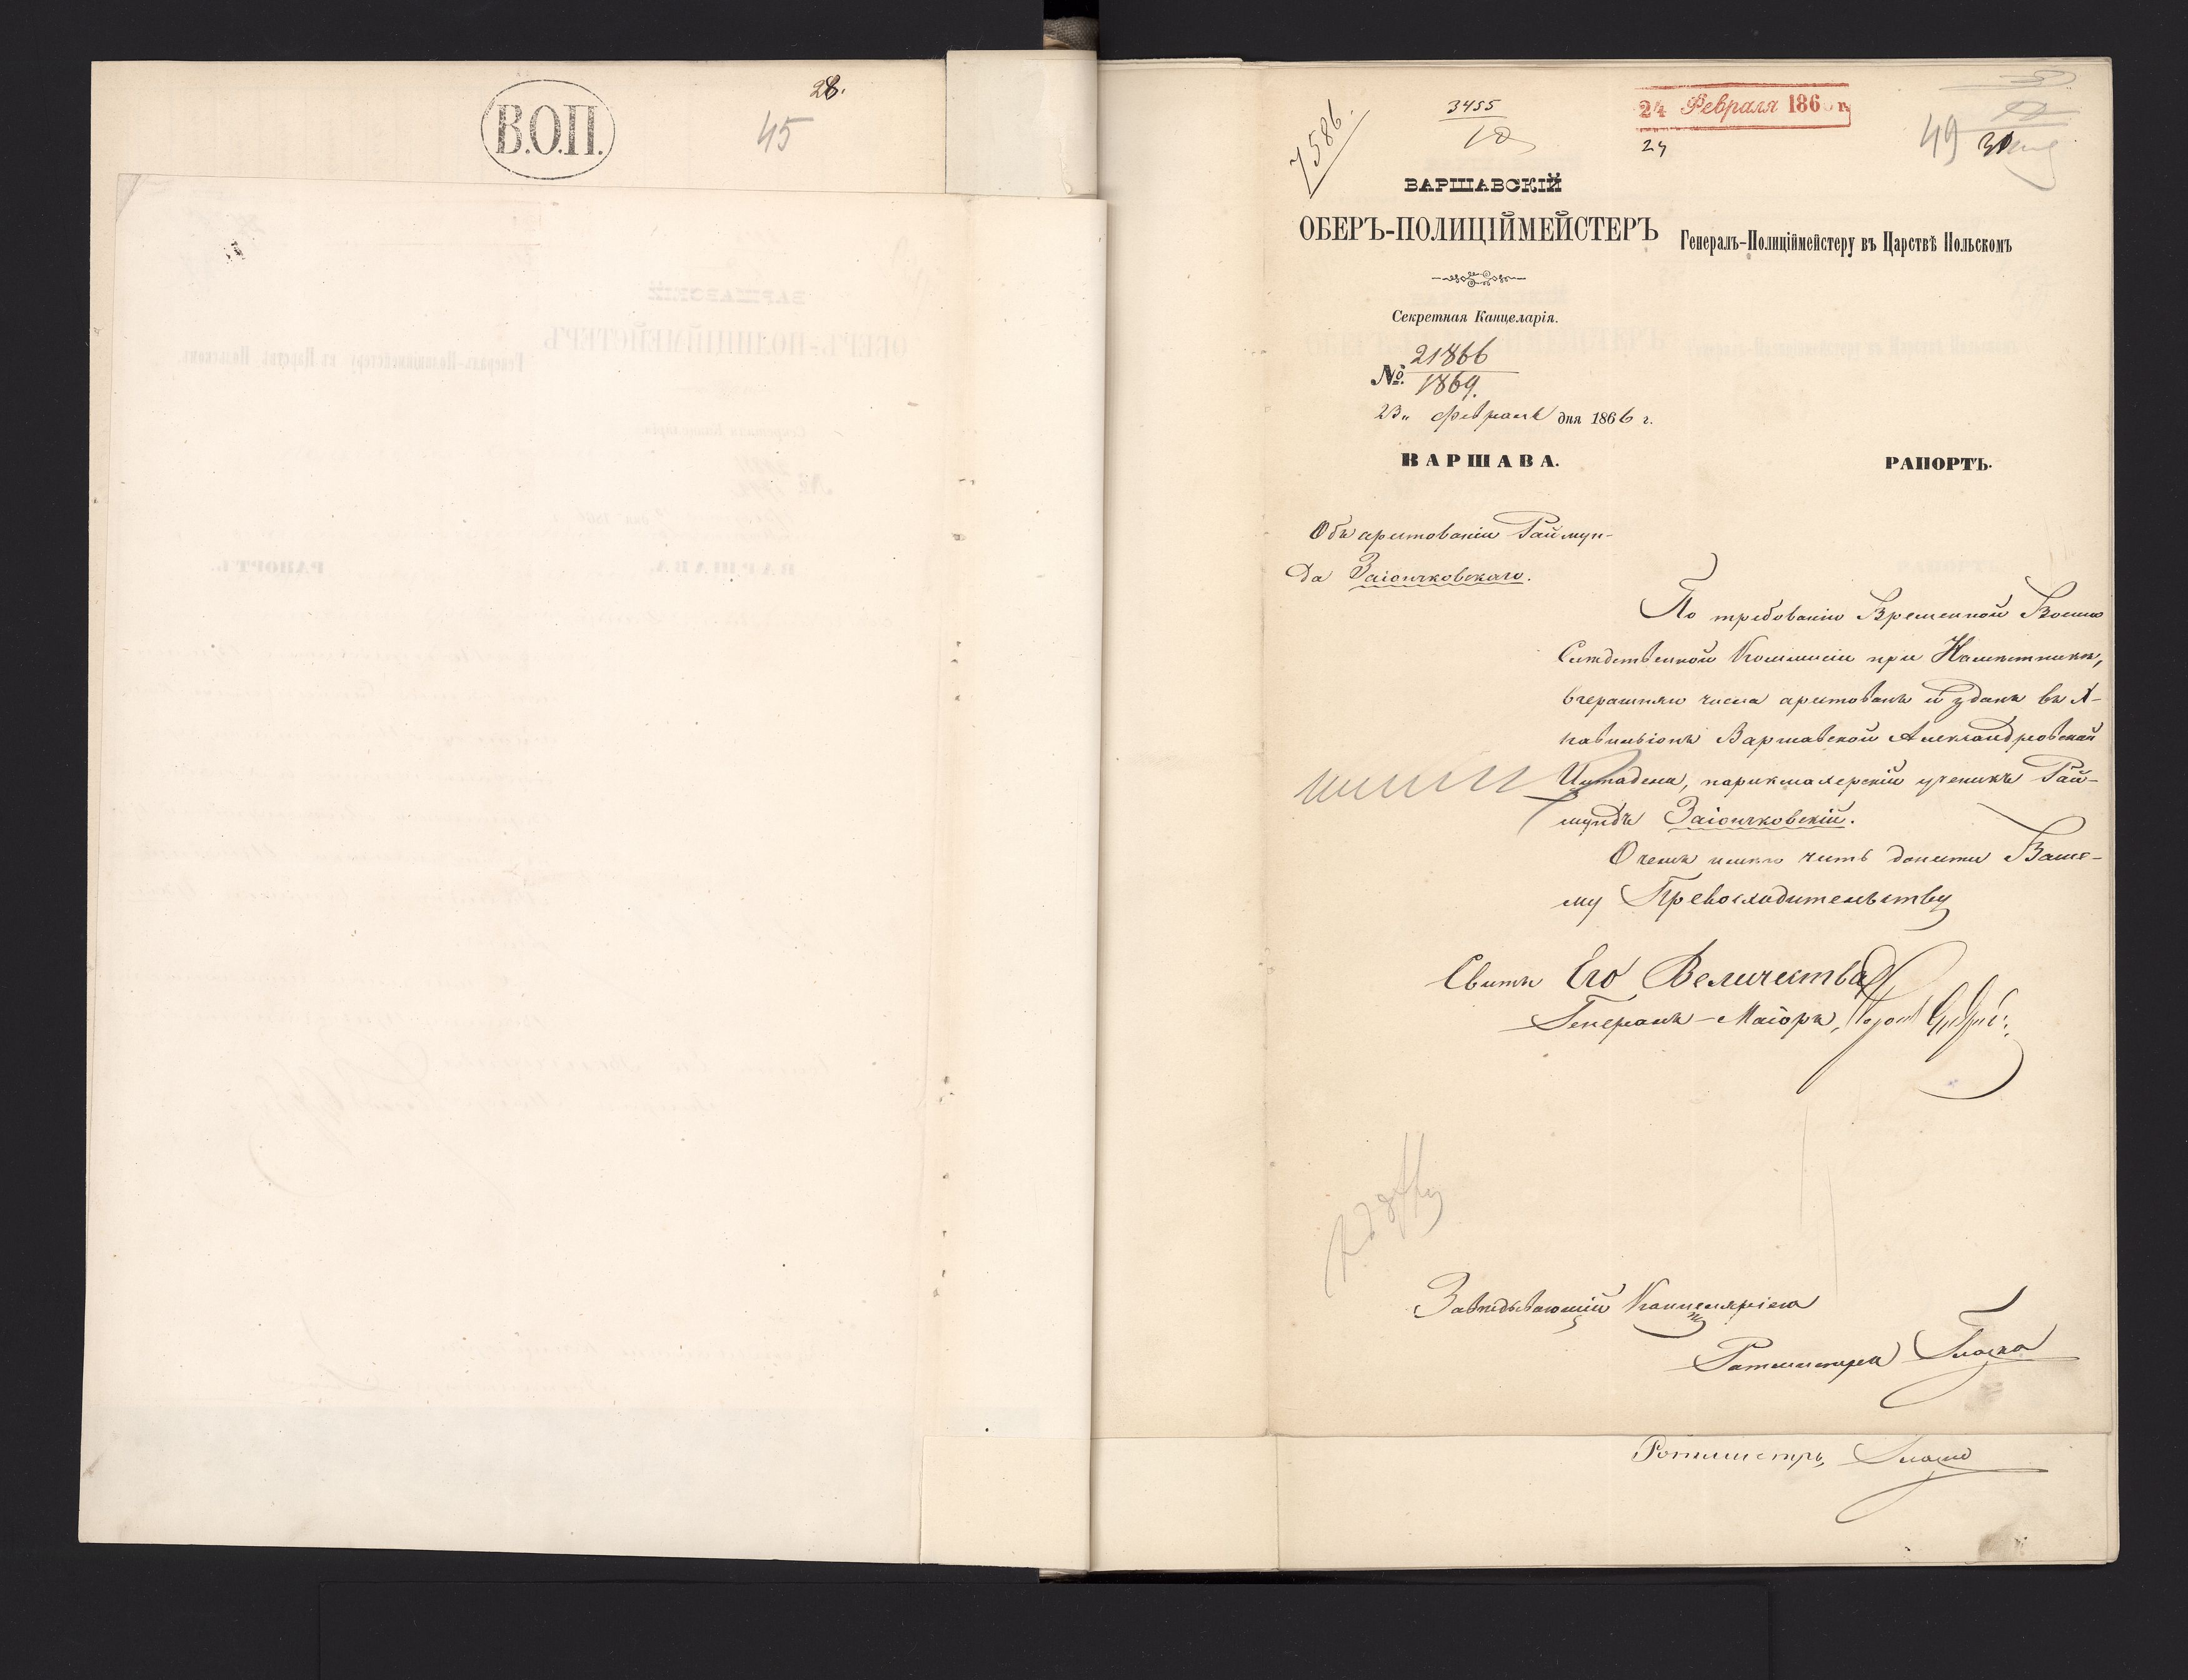 28.
В.О.П.
45
7586.
3455
10
24 Февраля 186 г.
24
49
31
ВАРШАВСКІЙ
ОБЕРЪ-ПОЛИЦІЙМЕЙСТЕРЪ
Генералъ-Полиціймейстеру въ Царствѣ Польскомъ
Секретная Канцеларія.
№ 21866
1869.
23 Февраля дня 1866 г.
ВАРШАВА.
РАПОРТЪ.
Объ арестованіи Раймун-
да Заіончковскаго.
По требованію Временной Военно
Слѣдственной Коммисіи при Намѣстникѣ,
вчерашняго числа арестованъ и сданъ въ X-
павильонъ Варшавской Александровской
Цитадели, парикмахерскій ученикъ Рай-
мундъ Заіончковскій.
О чемъ имѣю честь донести Ваше-
му Превосходительству
Свиты Его Величества
Генералъ-Маіоръ,
Завѣдывающій Канцеляріею
Ротмистръ
Ротмистръ